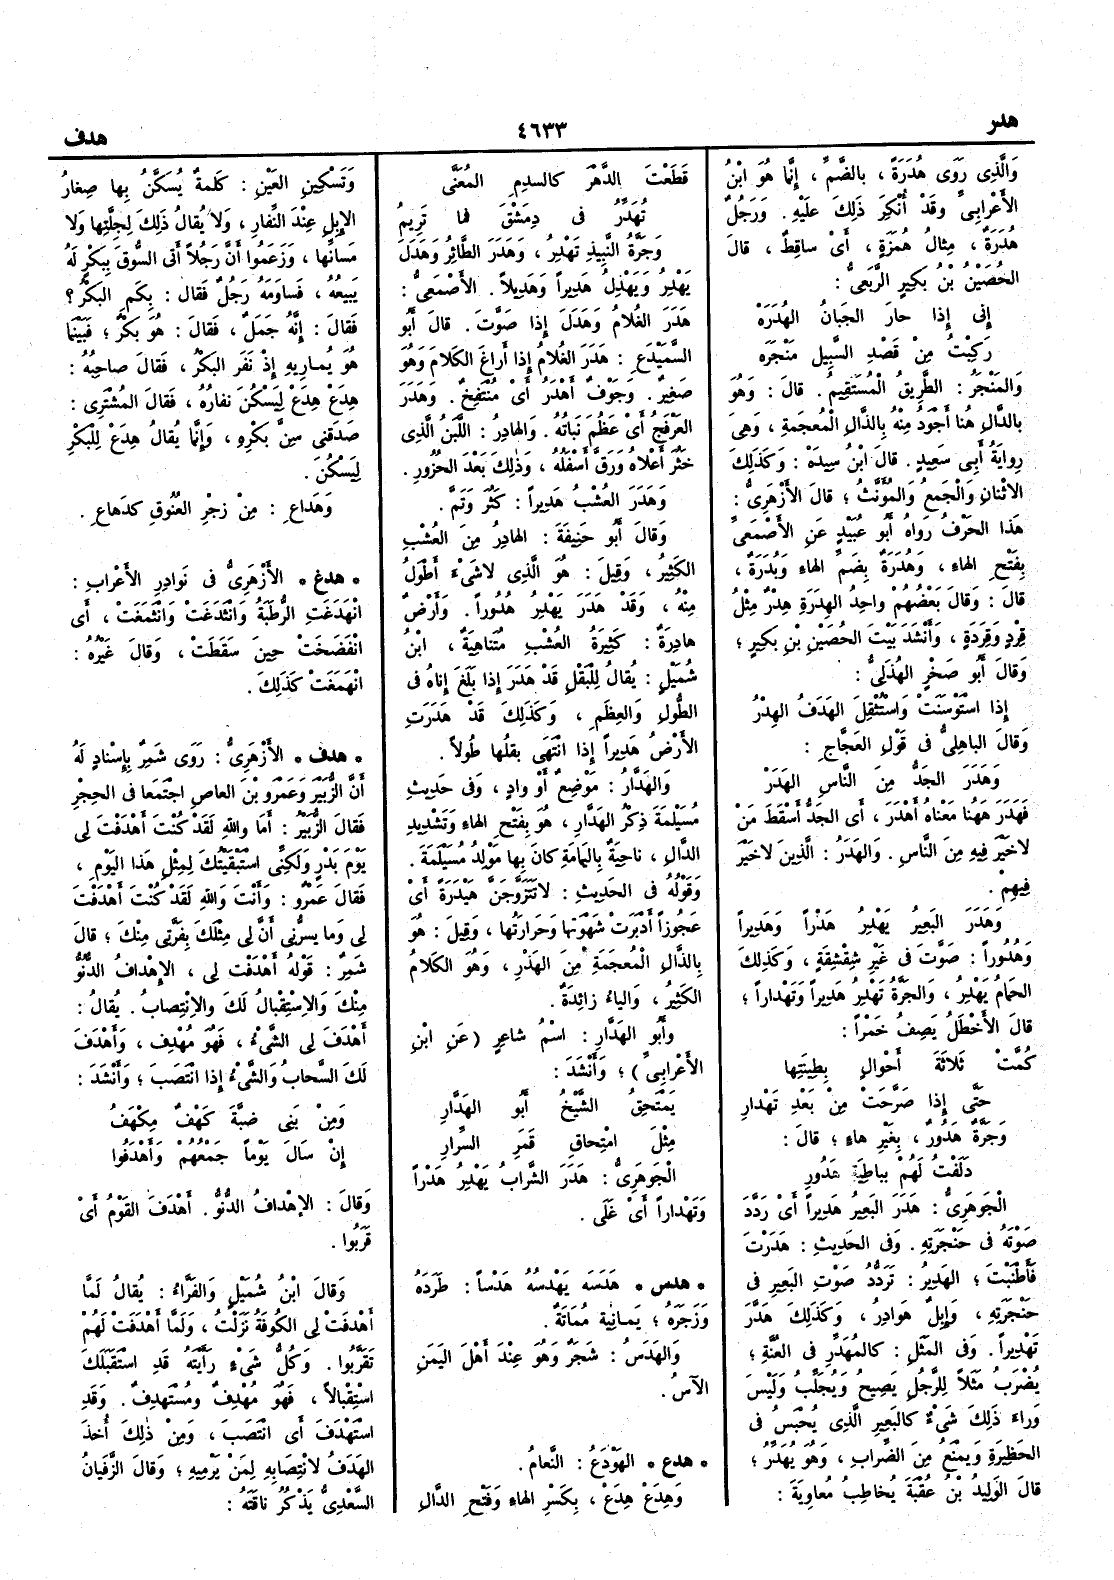 هدر
٤٦٣٣
هدف
وَالَّذِى رَوَى هُدَرَةً ، بِالضَّمِّ ، إِنَّما هُوَ ابْنُ
الأَعْرابِىِّ وَقَدْ أُنْكِرَ ذَلِكَ عَلَيْهِ. وَرَجُلٌ
هُدَرَةٌ ، مِثالُ هُمَزَةٍ ، أَىْ ساقِطٌ ، قالَ
الحُصَيْنُ بْنُ بكيرٍ الرَّبَعىُّ :
إِنِّى إِذا حارَ الجَبانُ الهُدَرَهْ
رَكِبْتُ مِنْ قَصْدِ السَّبِيلِ مَنْجَرَهْ
وَالمَنْجَرُ : الطَّرِيقُ الْمُسْتَقِيمُ. قالَ : وَهُوَ
بالدَّالِ هُنا أَجْوَدُ مِنْهُ بِالذَّالِ الْمُعجَمَةِ ، وَهِىَ
رِوايَةُ أَبِى سَعِيدٍ. قالَ ابْنُ سِيدَهْ : وَكَذَلِكَ
الاثْنانِ وَالْجَمعُ وَالمُؤَنَّثُ ؛ قالَ الأَزْهَرِىُّ :
هَذا الحَرْفُ رَواهُ أَبُو عُبَيْدٍ عَنِ الأَصْمَعِىِّ
بِفَتْحِ الهاءِ ، وَهُدَرَةٌ بِضَمِّ الهاءِ وَبُدَرَةٌ ،
قالَ : وَقالَ بَعْضُهُمْ واحِدُ الهِدَرَةِ هِدْرٌ مِثْلُ
قِرْدٍ وَقِرَدَةٍ ، وَأَنْشَدَ بَيْتَ الحُصَيْنِ بْنِ بكيرٍ ؛
وَقالَ أَبُو صَخْرٍ الهُذَلِىُّ :
إِذا اسْتَوْسَنَتْ وَاسْتُثْقِلَ الهَدَفُ الهِدْرُ
وَقالَ الباهِلِىُّ فى قَوْلِ العَجَّاجِ :
وَهَدَرَ الجَدُّ مِنَ النَّاسِ الهَدَرْ
فَهَدَرَ هٰهُنا مَعْناهُ أَهْدَرَ ، أَىِ الجَدُّ أَسْقَطَ مَنْ
لا خَيْرَ فِيهِ مِنَ النَّاسِ. والهَدَرُ : الَّذِينَ لا خَيْرَ
فِيهِمْ.
وَهَدَرَ البَعِيرُ يَهْدِرُ هَدْراً وَهَدِيراً
وَهُدُوراً : صَوَّتَ فى غَيْرِ شِقْشِقَةٍ ، وَكَذَلِكَ
الحَمامُ يَهْدِرُ ، وَالجَرَّةُ تَهْدِرُ هَدِيراً وَتَهْداراً ؛
قالَ الأَخْطَلُ يَصِفُ خَمْراً :
كُمَّتْ ثَلاثَةَ أَحْوالٍ بِطِينَتِها
حَتَّى إِذا صَرَّحَتْ مِنْ بَعْدِ تَهْدارِ
وَجَرَّةٌ هَدُورٌ ، بِغَيْرِ هاءٍ ؛ قالَ :
دَلَفْتُ لَهُمْ بِباطِيَةٍ هَدُورِ
الْجَوهَرِىُّ : هَدَرَ البَعِيرُ هَدِيراً أَىْ رَدَّدَ
صَوْتَهُ فى حَنْجَرَتِهِ. وَفِى الحَدِيثِ : هَدَرْتَ
فَأَطْنَبْتَ ؛ الهَدِيرُ : تَرَدُّدُ صَوْتِ البَعِيرِ فِى
حَنْجَرَتِهِ ، وَإِبِلٌ هَوادِرُ ، وَكَذَلِكَ هَدَّرَ
تَهْدِيراً. وَفى المَثَلِ : كالمُهَدِّرِ فى العُنَّةِ ؛
يُضْرَبُ مَثَلاً لِلرَّجُلِ يَصِيحُ وَيُجَلِّبُ وَلَيْسَ
وَراءَ ذَلِكَ شَىْءٌ كالبَعِيرِ الَّذِى يُحْبَسُ فى
الحَظِيرَةِ وَيُمْنَعُ مِنَ الضِّرابِ ، وَهُوَ يُهَدِّرُ ؛
قالَ الوَلِيدُ بْنُ عُقْبَةَ يُخاطِبُ مُعاوِيَةَ :
قَطَعْتَ الدَّهْرَ كالسدِمِ المُعَنَّى
تُهَدِّرُ فى دِمَشْقَ فَما تَرِيمُ
وَجَرَّةُ النَّبِيذِ تَهْدِرُ ، وَهَدَرَ الطَّائِرُ وَهَدَلَ
يَهْدِرُ وَيَهْدِلُ هَدِيراً وَهَدِيلاً. الأَصْمَعِىُّ :
هَدَرَ الغُلامُ وَهَدَلَ إِذا صَوَّتَ. قالَ أَبُو
السَّمَيْدَعِ : هَدَرَ الغُلامُ إِذا أَراغَ الكَلامَ وَهُوَ
صَغِيرٌ. وَجَوْفٌ أَهْدَرُ أَىْ مُنْتَفِخٌ. وَهَدَرَ
العَرْفَجُ أَىْ عَظُمَ نَباتُهُ. وَالهادِرُ : اللَّبَنُ الَّذِى
خَثُرَ أَعْلاهُ وَرَقَّ أَسْفَلُهُ ، وَذَلِكَ بَعْدَ الحُزُورِ.
وَهَدَرَ العُشْبُ هَدِيراً : كَثُرَ وَتَمَّ.
وَقالَ أَبُو حَنِيفَةَ : الهادِرُ مِنَ العُشْبِ
الكَثِيرُ ، وَقِيلَ : هُوَ الَّذِى لا شَىْءَ أَطْوَلُ
مِنْهُ ، وَقَدْ هَدَرَ يَهْدِرُ هُدُوراً. وَأَرْضٌ
هادِرَةٌ : كَثِيرَةُ العُشْبِ مُتَناهِيَةٌ ، ابْنُ
شُمَيْلٍ : يُقالُ لِلْبَقْلِ قَدْ هَدَرَ إِذا بَلَغَ إِناهُ فى
الطُّولِ وَالعِظَمِ ، وَكَذَلِكَ قَدْ هَدَرَتِ
الأَرْضُ هَدِيراً إِذا انْتَهَى بَقلُها طُولاً.
وَالهَدَّارُ : مَوْضِعٌ أَوْ وادٍ ، وَفى حَدِيثِ
مُسَيْلِمَةَ ذِكْرُ الهَدَّارِ ، هُوَ بِفَتْحِ الهاءِ وَتَشْدِيدِ
الدَّالِ ، ناحِيَةٌ بِالْيَمامَةِ كانَ بِها مَوْلِدُ مُسَيْلِمَةَ.
وَقَوْلُهُ فى الحَدِيثِ : لا تَتَزَوَّجَنَّ هَيْدَرَةً أَىْ
عَجُوزاً أَدْبَرَتْ شَهْوَتُها وَحَرارَتُها ، وَقِيلَ : هُوَ
بِالذَّالِ الْمُعجَمَةِ مِنَ الهَذَرِ ، وَهُوَ الكَلامُ
الكَثِيرُ ، وَالياءُ زائِدَةٌ.
وَأَبُو الهَدَّارِ : اسْمُ شاعِرٍ (عَنِ ابْنِ
الأَعْرابِىِّ) ؛ وَأَنْشَدَ :
يَمْتَحِقُ الشَّيْخُ أَبُو الهَدَّارِ
مِثْلَ امْتِحاقِ قَمَرِ السَّرارِ
الْجَوهَرِىُّ : هَدَرَ الشَّرابُ يَهْدِرُ هَدْراً
وَتَهْداراً أَىْ غَلَى.
• هدس • هَدَسَه يَهْدِسُهُ هَدْساً : طَرَدَهُ
وَزَجَرَهُ ؛ يَمانِيَةٌ مُماتَةٌ.
وَالهَدَسُ : شَجَرٌ وَهُوَ عِنْدَ أَهْلِ اليَمَنِ
الآسُ.
• هدع • الهَوْدَعُ : النَّعامُ.
وَهِدَعْ هِدَعْ ، بِكَسْرِ الهاءِ وَفَتْحِ الدَّالِ
وَتَسْكِينِ العَيْنِ : كَلِمَةٌ يُسَكَّنُ بِها صِغارُ
الإِبِلِ عِنْدَ النِّفارِ ، وَلا يُقالُ ذَلِكَ لِجِلَّتِها وَلا
مَسانِّها ، وَزَعَمُوا أَنَّ رَجُلاً أَتَى السُّوقَ بِبَكْرٍ لَهُ
يَبِيعُهُ ، فَساوَمَهُ رَجُلٌ فَقالَ : بِكَمِ البَكْرُ ؟
فَقالَ : إِنَّهُ جَمَلٌ ، فَقالَ : هُوَ بَكْرٌ ؛ فَبَيْنَما
هُوَ يُمارِيهِ إِذْ نَفَرَ البَكْرُ ، فَقالَ صاحِبُهُ :
هِدَعْ هِدَعْ لِيَسْكُنَ نِفارُهُ ، فَقالَ المُشْتَرِى :
صَدَقَنِى سِنَّ بَكْرِهِ ، وَإِنَّما يُقالُ هِدَعْ لِلْبَكْرِ
لِيَسْكُنَ.
وَهَدَاعِ : مِنْ زَجْرِ العُنُوقِ كَدَهاعِ.
• هدغ • الأَزْهَرِىُّ فى نَوادِرِ الأَعْرابِ :
انْهَدَغَتِ الرُّطَبَةُ وَانْثَدَغَتْ وَانْثَمَغَتْ ، أَى
انْفَضَخَتْ حِينَ سَقَطَتْ ، وَقالَ غَيْرُهُ :
انْهَمَغَتْ كَذَلِكَ.
• هدف • الأَزْهَرِىُّ : رَوَى شَمِرٌ بِإِسْنادٍ لَهُ
أَنَّ الزُّبَيْرَ وَعَمْرَو بْنَ العاصِ اجْتَمَعا فى الحِجْرِ
فَقالَ الزُّبَيْرُ : أَما وَاللهِ لَقَدْ كُنْتَ أَهْدَفْتَ لِى
يَوْمَ بَدْرٍ وَلَكِنِّى اسْتَبْقَيْتُكَ لِمِثْلِ هَذا اليَوْمِ ،
فَقالَ عَمْرٌو : وَأَنْتَ وَاللهِ لَقَدْ كُنْتَ أَهْدَفْتَ
لِى وَما يسرُّنِى أَنَّ لِى مِثْلَكَ بِفَرَّتِى مِنْكَ ؛ قالَ
شَمِرٌ : قَوْلُهُ أَهْدَفْت لِى ، الإِهْدافُ الدُّنُوُّ
مِنْكَ وَالاسْتِقْبالُ لَكَ وَالاِنْتِصابُ. يُقالُ :
أَهْدَفَ لِى الشَّىْءُ ، فَهُوَ مُهْدِف ، وَأَهْدَفَ
لَكَ السَّحابُ وَالشَّىْءُ إِذا انْتَصَبَ ؛ وَأَنْشَدَ :
وَمِنْ بَنِى ضبَّةَ كَهْفٌ مِكْهَفُ
إِنْ سَالَ يَوْماً جَمْعُهُمْ وَأَهْدَفُوا
وَقالَ : الإِهْدافُ الدُّنُوُّ. أَهْدَفَ القَوْمُ أَىْ
قَرَبُوا.
وَقالَ ابْنُ شُمَيْلٍ وَالفَرَّاءُ : يُقالُ لَمَّا
أَهْدَفَتْ لِى الكُوفَةُ نَزَلْتُ ، وَلَمَّا أَهْدَفَتْ لَهُمْ
تَقَرَّبُوا. وَكُلُّ شَىْءٍ رَأَيْتَهُ قَدِ اسْتَقْبَلَكَ
اسْتِقْبالاً ، فَهُوَ مُهْدِفٌ وَمُسْتَهدِفٌ. وَقَدِ
اسْتَهْدَفَ أَى انْتَصَبَ ، وَمِنْ ذَلِكَ أُخِذَ
الهَدَفُ لانْتِصابِهِ لِمَنْ يَرْمِيهِ ؛ وَقالَ الزَّفَيانُ
السَّعْدِىُّ يَذْكُرُ ناقَتَهُ :